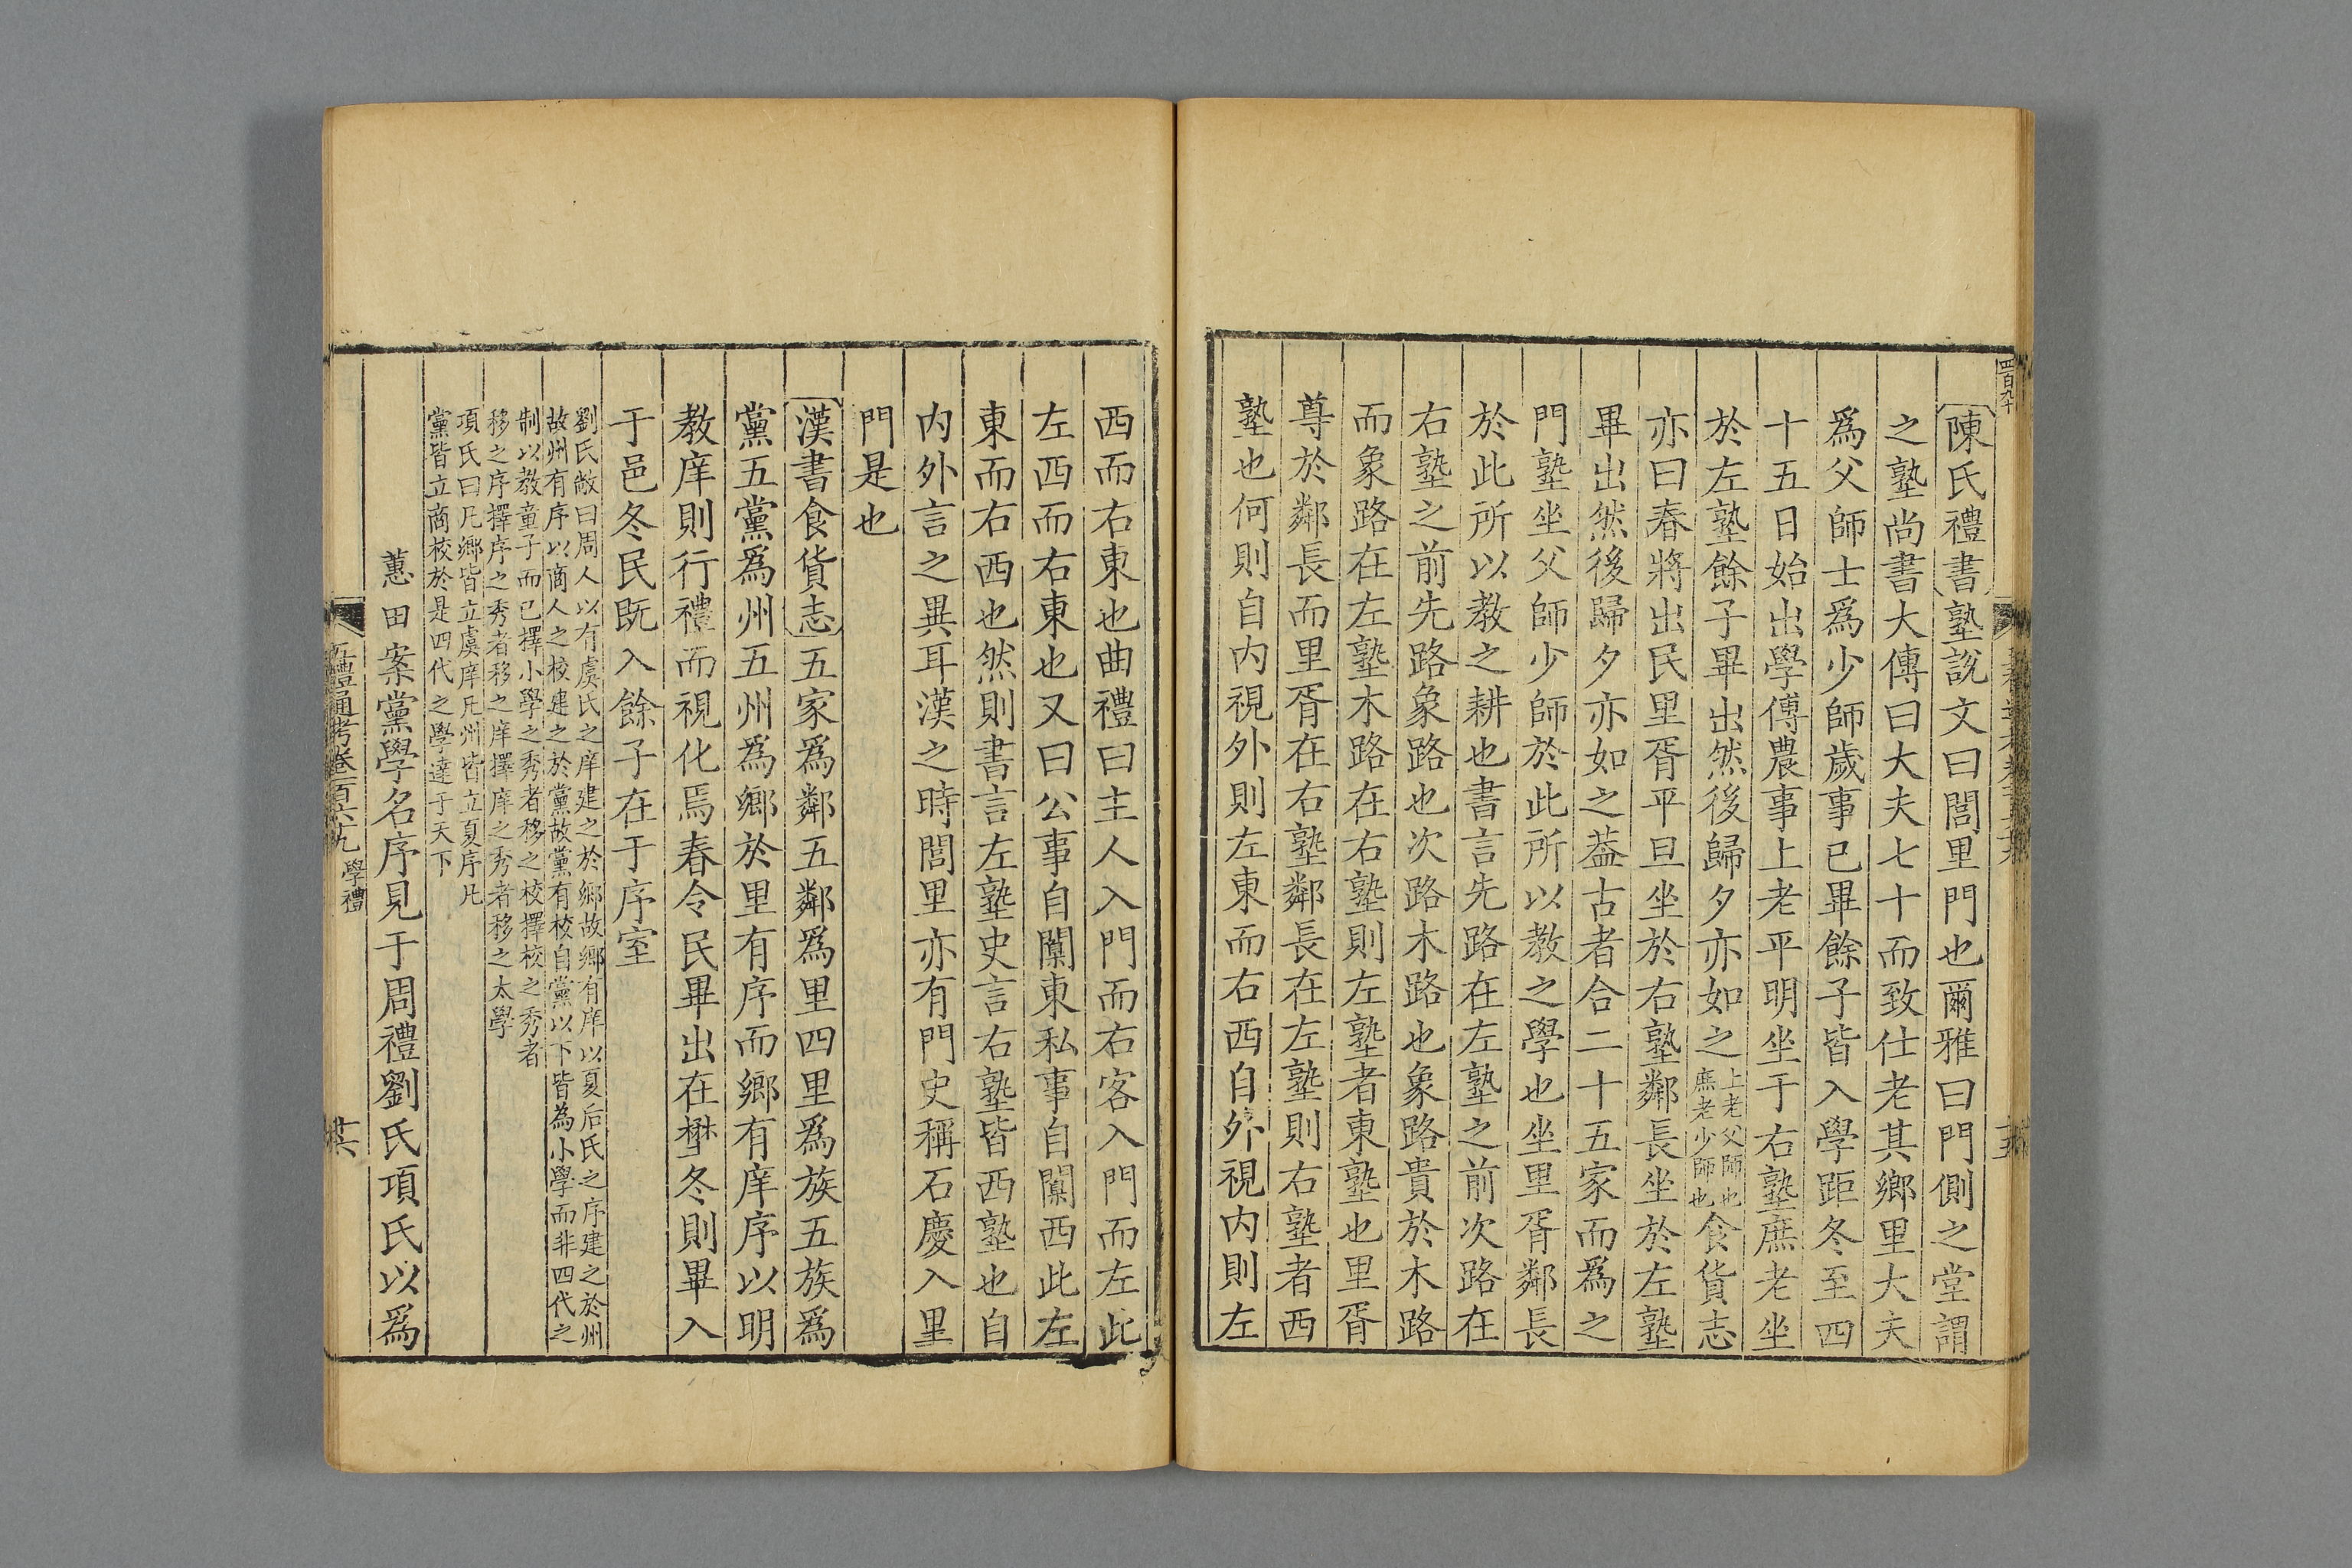 四百九十
陳氏禮書塾說文曰閭里門也爾雅曰門側之堂謂
之塾尚書大傳曰大夫七十而致仕老其鄉里大夫
爲父師士爲少師歲事已畢餘子皆入學距冬至四
十五日始出學傅農事上老平明坐于右塾庶老坐
於左塾餘子畢出然後歸夕亦如之上老父師也庶老少師也食貨志
亦曰春將出民里胥平旦坐於右塾鄰長坐於左塾
畢出然後歸夕亦如之葢古者合二十五家而爲之
門塾坐父師少師於此所以教之學也坐里胥鄰長
於此所以教之耕也書言先路在左塾之前次路在
右塾之前先路象路也次路木路也象路貴於木路
而象路在左塾木路在右塾則左塾者東塾也里胥
尊於鄰長而里胥在右塾鄰長在左塾則右塾者西
塾也何則自内視外則左東而右西自外視内則左
西而右東也曲禮曰主人入門而右客入門而左此
左西而右東也又曰公事自闑東私事自闑西此左
東而右西也然則書言左塾史言右塾皆西塾也自
内外言之異耳漢之時閭里亦有門史稱石慶入里
門是也
漢書食貨志五家爲鄰五鄰爲里四里爲族五族爲
黨五黨爲州五州爲鄉於里有序而鄉有庠序以明
教庠則行禮而視化焉春令民畢出在壄冬則畢入
于邑冬民既入餘子在于序室
劉氏敞曰周人以有虞氏之庠建之於鄉故鄉有庠以夏后氏之序建之於州
故州有序以商人之校建之於黨故黨有校自黨以下皆為小學而非四代之
制以教童子而已擇小學之秀者移之校擇校之秀者
移之序擇序之秀者移之庠擇庠之秀者移之太學
項氏曰凡鄉皆立虞庠凡州皆立夏序凡
黨皆立商校於是四代之學達于天下
蕙田案黨學名序見于周禮劉氏項氏以爲
五禮通考卷一百六十九 學禮